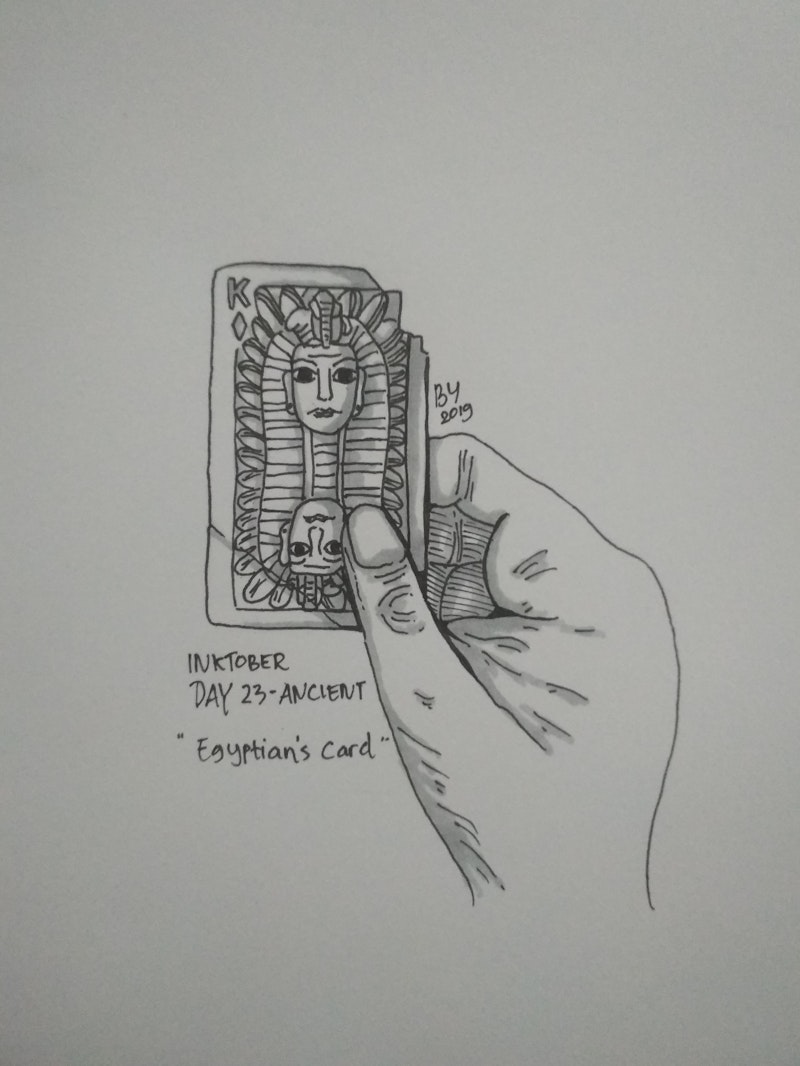 K
BY
2019
INKTOBER
DAY 23-ANCIENT
"Egyptian's Card"